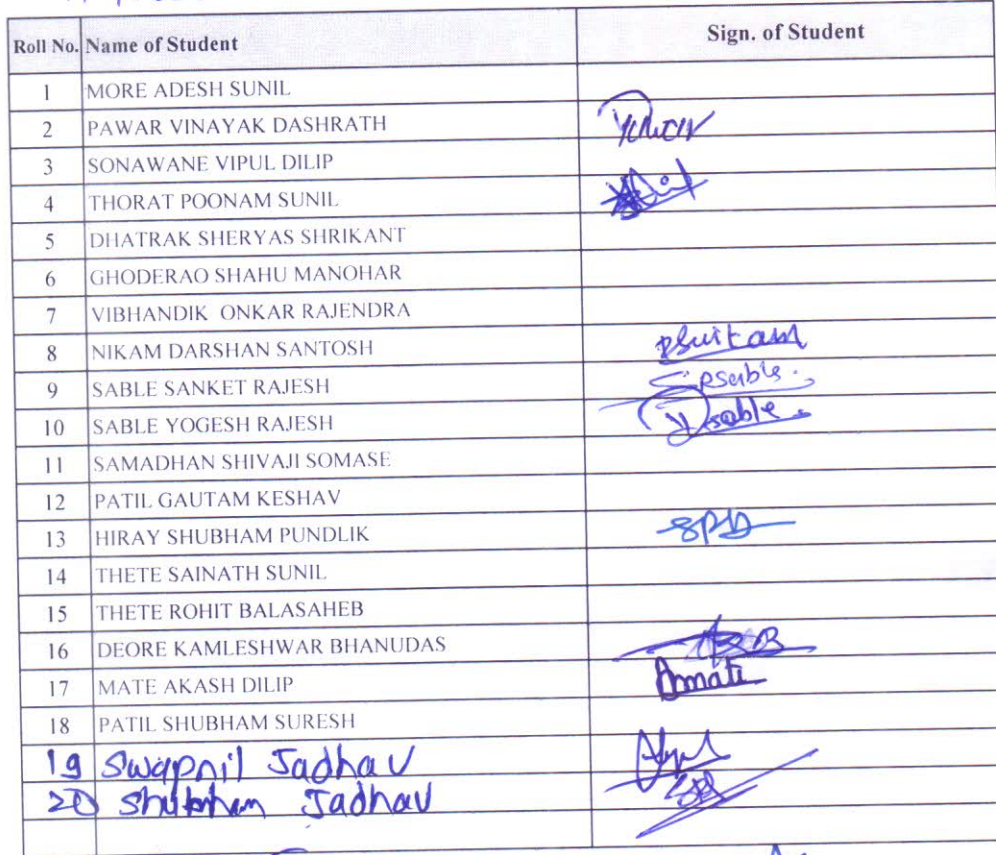 Roll No. Name of Student Sign. of Student
1 MORE ADESH SUNIL
2 PAWAR VINAYAK DASHRATH
3 SONAWANE VIPUL DILIP
4 THORAT POONAM SUNIL
5 DHATRAK SHERYAS SHRIKANT
6 GHODERAO SHAHU MANOHAR
7 VIBHANDIK ONKAR RAJENDRA
8 NIKAM DARSHAN SANTOSH
9 SABLE SANKET RAJESH
10 SABLE YOGESH RAJESH
11 SAMADHAN SHIVAJI SOMASE
12 PATIL GAUTAM KESHAV
13 HIRAY SHUBHAM PUNDLIK
14 THETE SAINATH SUNIL
15 THETE ROHIT BALASAHEB
16 DEORE KAMLESHWAR BHANUDAS
17 MATE AKASH DILIP Amate
18 PATIL SHUBHAM SURESH
19 Swapnil Jadhav
20 Shubham Jadhav